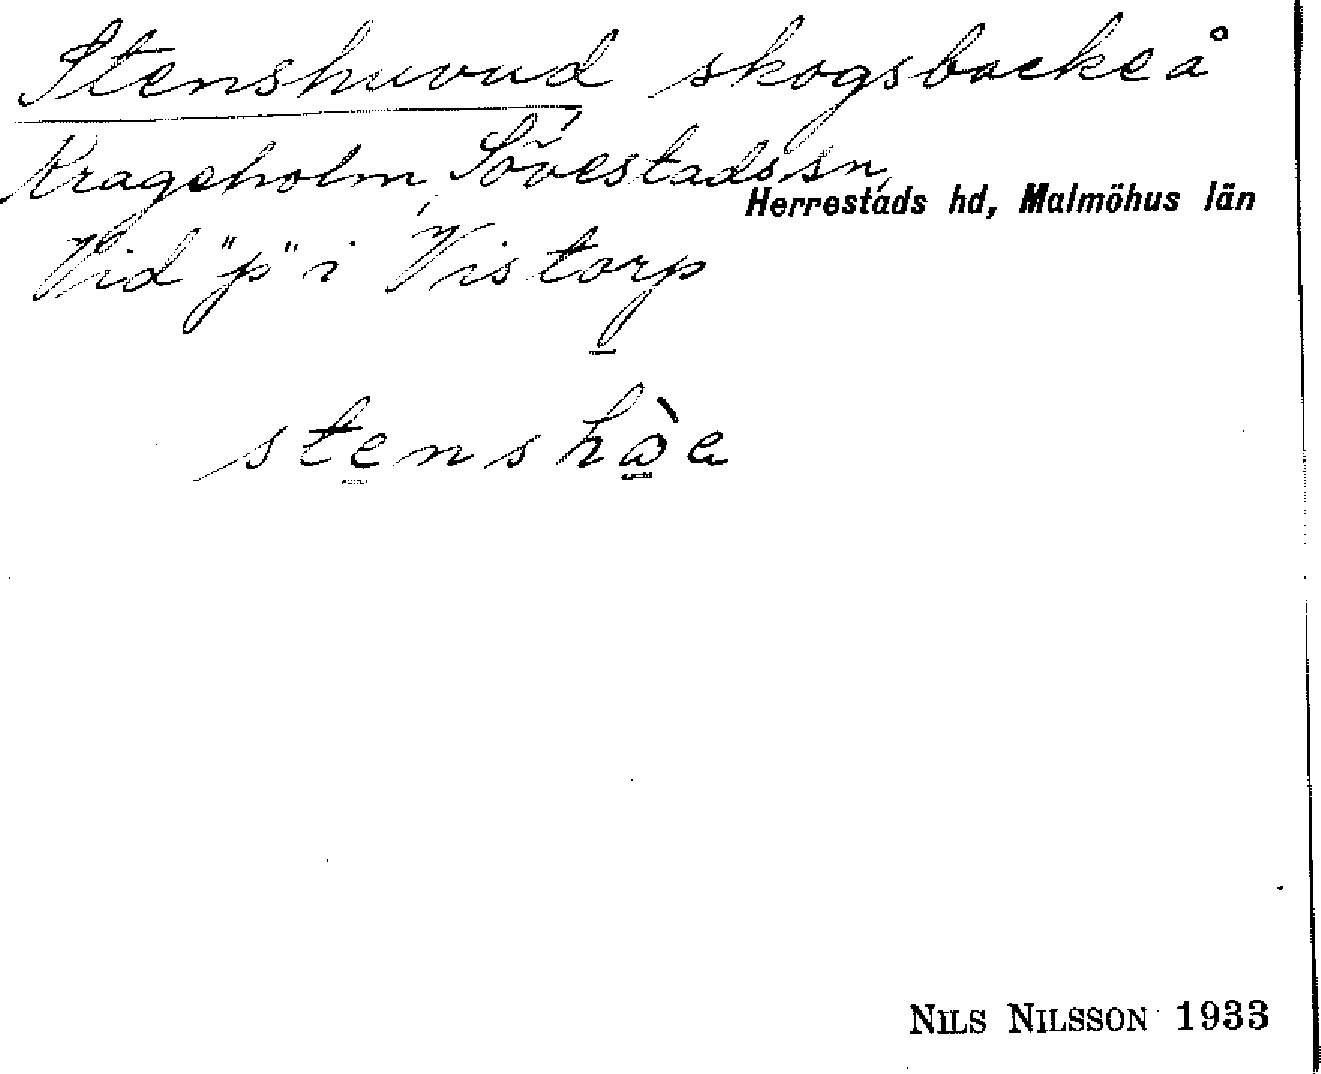 Stenshuvud skogsbacke å
Krageholm, Sövestads sn,
Herrestads hd, Malmöhus län
Vid "p" i Vistorp
stenshòe
NILS NILSSON 1933